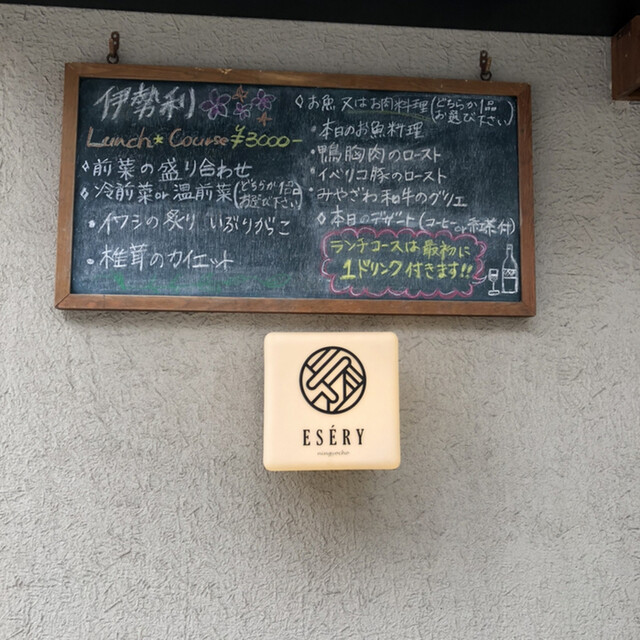 伊勢利
Lunch* Course ¥3000-
◇前菜の盛り合わせ
◇冷前菜or温前菜(どちらか1品
お選び下さい)
・イワシの炙り いぶりがっこ
・椎茸のカイエット
◇お魚又はお肉料理(どちらか1品
お選び下さい)
・本日のお魚料理
・鴨胸肉のロースト
・イベリコ豚のロースト
・みやざわ和牛のグリエ
◇本日のデザート(コーヒーor紅茶付)
ランチコースは最初に
1ドリンク付きます!!
ESÉRY